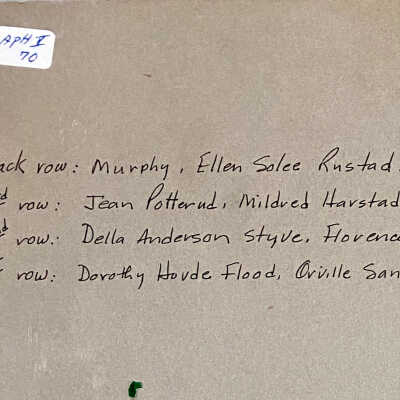 APH I
70
ack row: Murphy, Ellen Solee Rustad
d row: Jean Potterud, Mildred Harstad
d row: Della Anderson Styve, Florenc
row: Dorothy Hovde Flood, Orville San